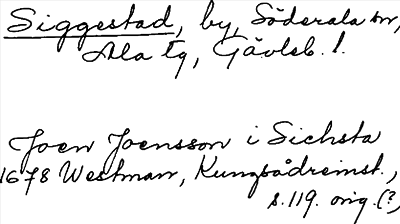 Siggestad, by, Söderala sn,
Ala tg, Gävleb. l.
Joen Joensson i Sichsta
1678 Westman, Kungsådreinst.,
s. 119. orig. (?)